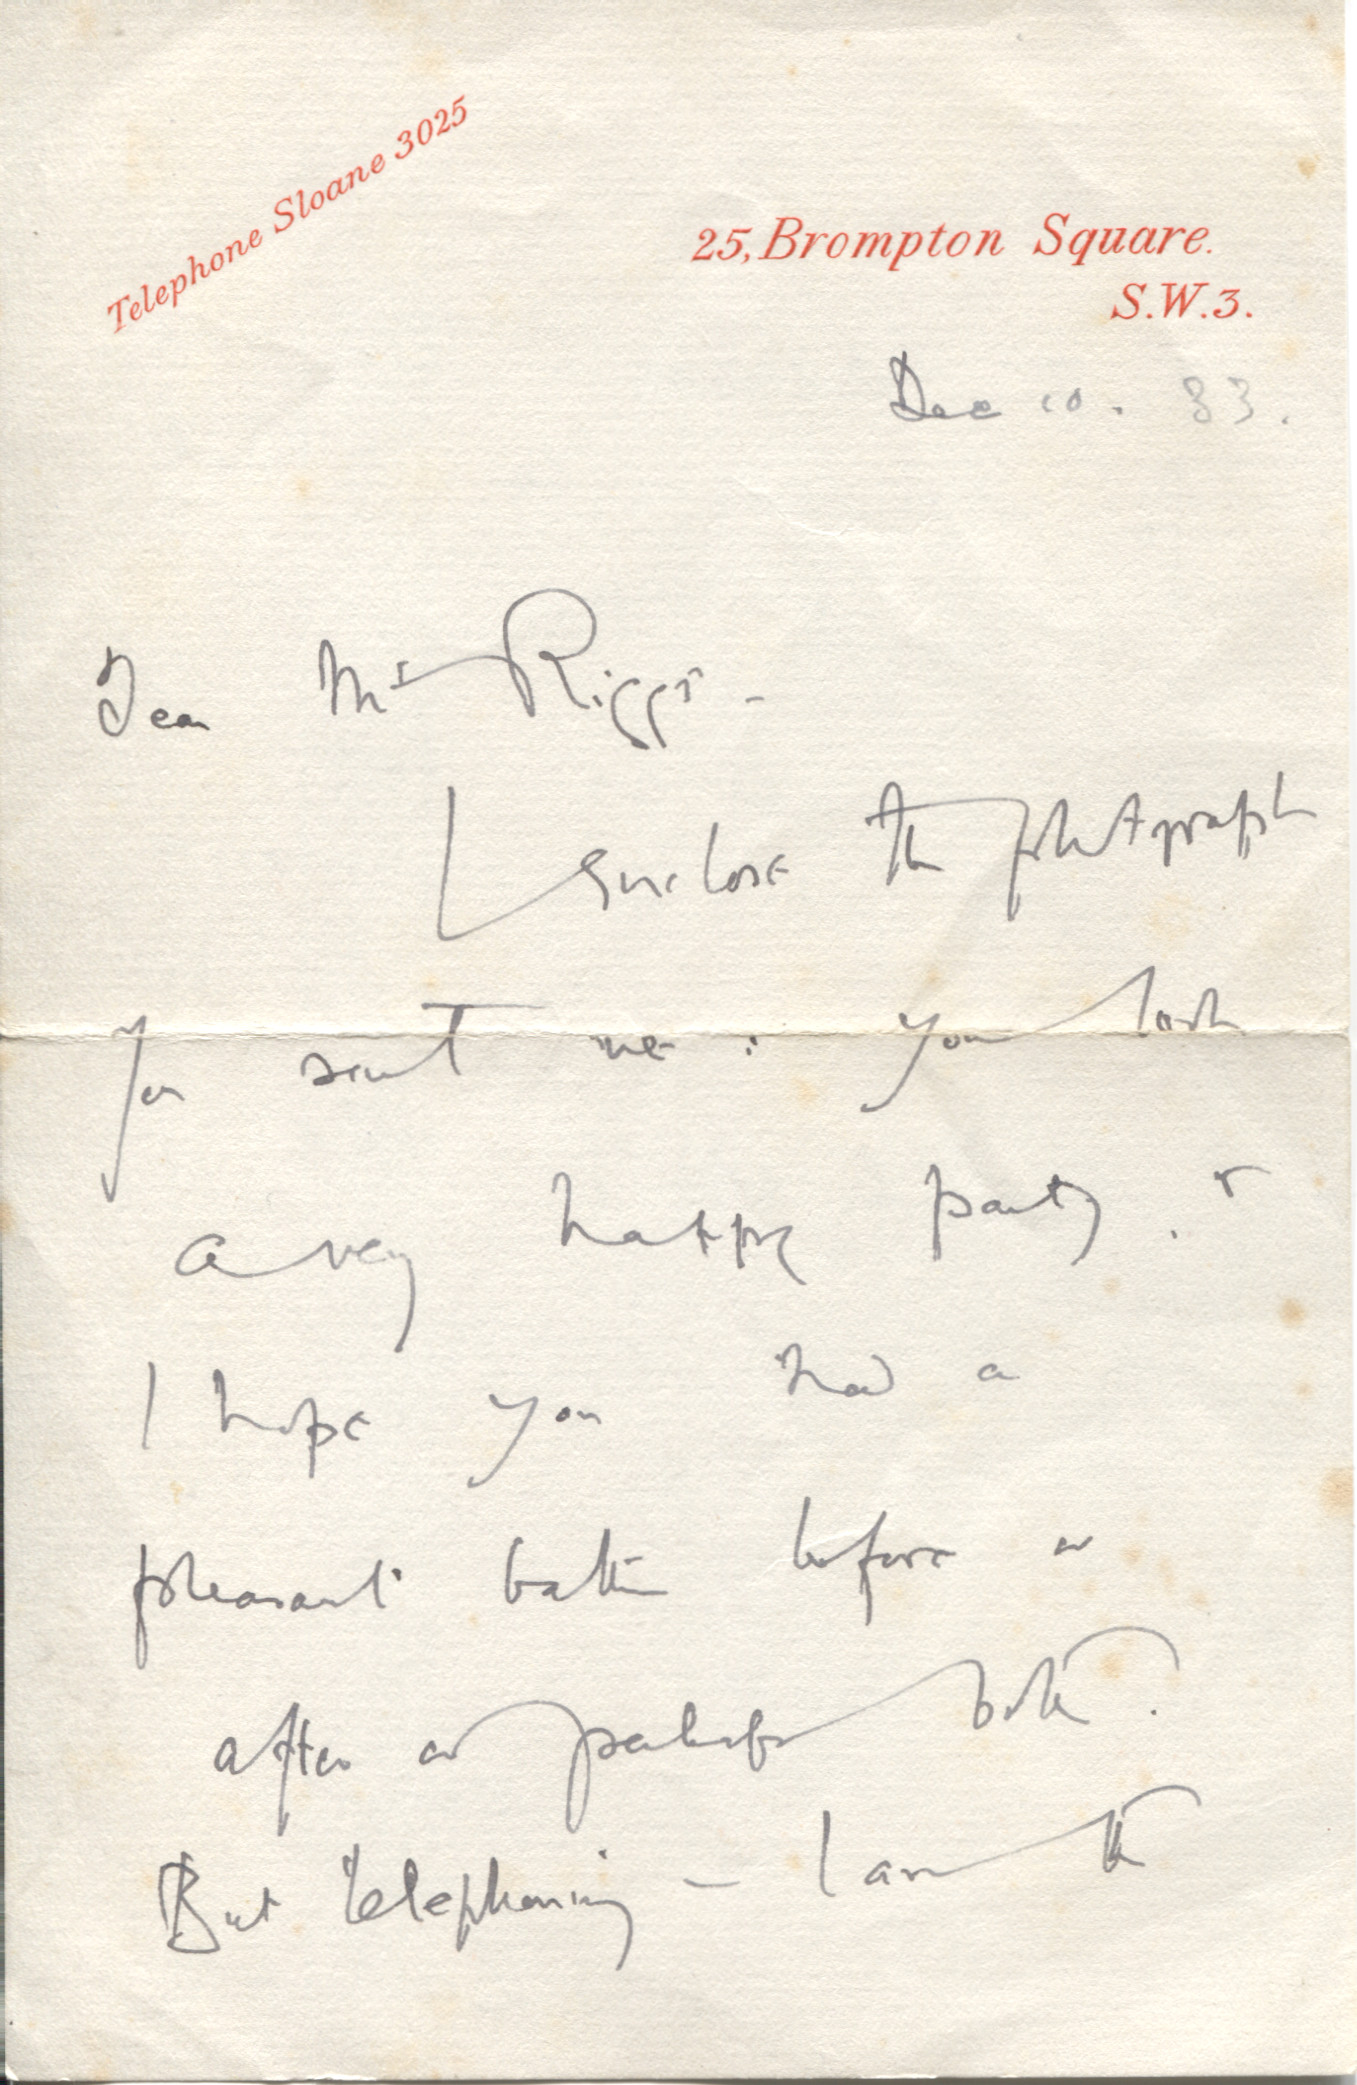 Telephone Sloane 3025
25, Brompton Square.
S.W.3.
Dec 10. 33.
Dear Mr Riggs -
I enclose the photograph
you sent me: you look
a very happy party. &
I hope you had a
pleasant bathe before or
after or perhaps both.
But telephoning - I am the